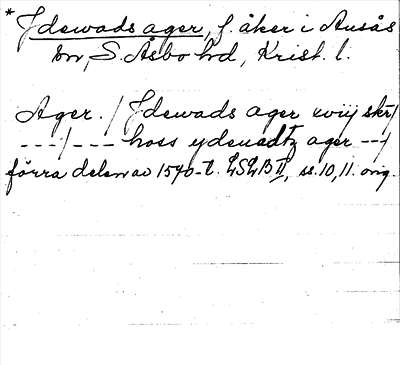 * Jdewads ager, f. åker i Ausås
sn, S. Åsbo hd, Krist. l.
Ager. / Jdewads ager xviij skr/
---/--- hoss ydewadtz ager ---/
förra delen av 1540-t. LSLB II, ss. 10, 11. orig.